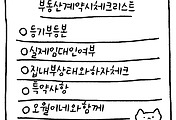 부동산계약시체크리스트
등기부등본
실제임대인여부
집내부상태와하자체크
특약사항
오월이네와함께